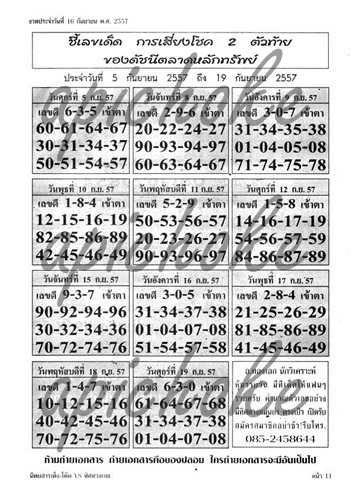 งวดประจำวันที่ 16 กันยายน พ.ศ. 2557
ชี้เลขเด็ด การเสี่ยงโชค 2 ตัวท้าย
ของดัชนีตลาดหลักทรัพย์
ประจำวันที่ 5 กันยายน 2557 ถึง 19 กันยายน 2557
วันศุกร์ที่ 5 ก.ย. 57
เลขดี 6-3-5 เข้าตา
60-61-64-67
30-31-34-37
50-51-54-57
วันจันทร์ที่ 8 ก.ย. 57
เลขดี 2-9-6 เข้าตา
20-22-24-27
90-93-94-97
60-63-64-67
วันอังคารที่ 9 ก.ย. 57
เลขดี 3-0-7 เข้าตา
31-34-35-38
01-04-05-08
71-74-75-78
วันพุธที่ 10 ก.ย. 57
เลขดี 1-8-4 เข้าตา
12-15-16-19
82-85-86-89
42-45-46-49
วันพฤหัสบดีที่ 11 ก.ย. 57
เลขดี 5-2-9 เข้าตา
50-53-56-57
20-23-26-27
90-93-96-97
วันศุกร์ที่ 12 ก.ย. 57
เลขดี 1-5-8 เข้าตา
14-16-17-19
54-56-57-59
84-86-87-89
วันจันทร์ที่ 15 ก.ย. 57
เลขดี 9-3-7 เข้าตา
90-92-94-96
30-32-34-36
70-72-74-76
วันอังคารที่ 16 ก.ย. 57
เลขดี 3-0-5 เข้าตา
31-34-37-38
01-04-07-08
51-54-57-58
วันพุธที่ 17 ก.ย. 57
เลขดี 2-8-4 เข้าตา
21-25-26-29
81-85-86-89
41-45-46-49
วันพฤหัสบดีที่ 18 ก.ย. 57
เลขดี 1-4-7 เข้าตา
10-12-15-16
40-42-45-46
70-72-75-76
วันศุกร์ที่ 19 ก.ย. 57
เลขดี 6-3-0 เข้าตา
61-64-67-68
31-34-37-38
01-04-07-08
นักวิเคราะห์
085-2458644
ห้ามถ่ายเอกสาร ถ่ายเอกสารคือของปลอม ใครถ่ายเอกสารจะมีอันเป็นไป
หน้า 11
apichoke
apichoke
apichoke
apichoke